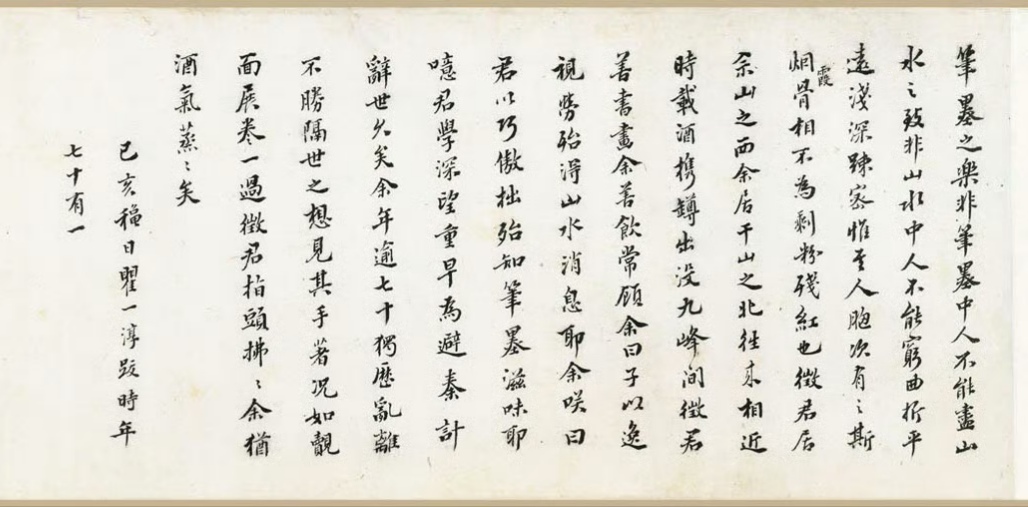 筆墨之樂非筆墨中人不能盡山
水之致非山水中人不能窮曲折平
遠淺深踈密惟至人胸次有〻斯
烟霞骨相不為剩粉殘紅也徵君居
佘山之西余居干山之北徃来相近
時載酒携罇出没九峰間徵君
善書畫余善飲常顧余曰子以逸
視勞殆淂山水消息耶余咲曰
君以巧傲拙殆知筆墨滋味耶
噫君學深望重早為避秦計
辭世久矣余年逾七十獨歷亂離
不勝隔世之想見其手著况如觀
面展卷一過徵君指頭拂〻余猶
酒氣蒸〻矣
己亥穐日瞿一淳跋時年
七十有一